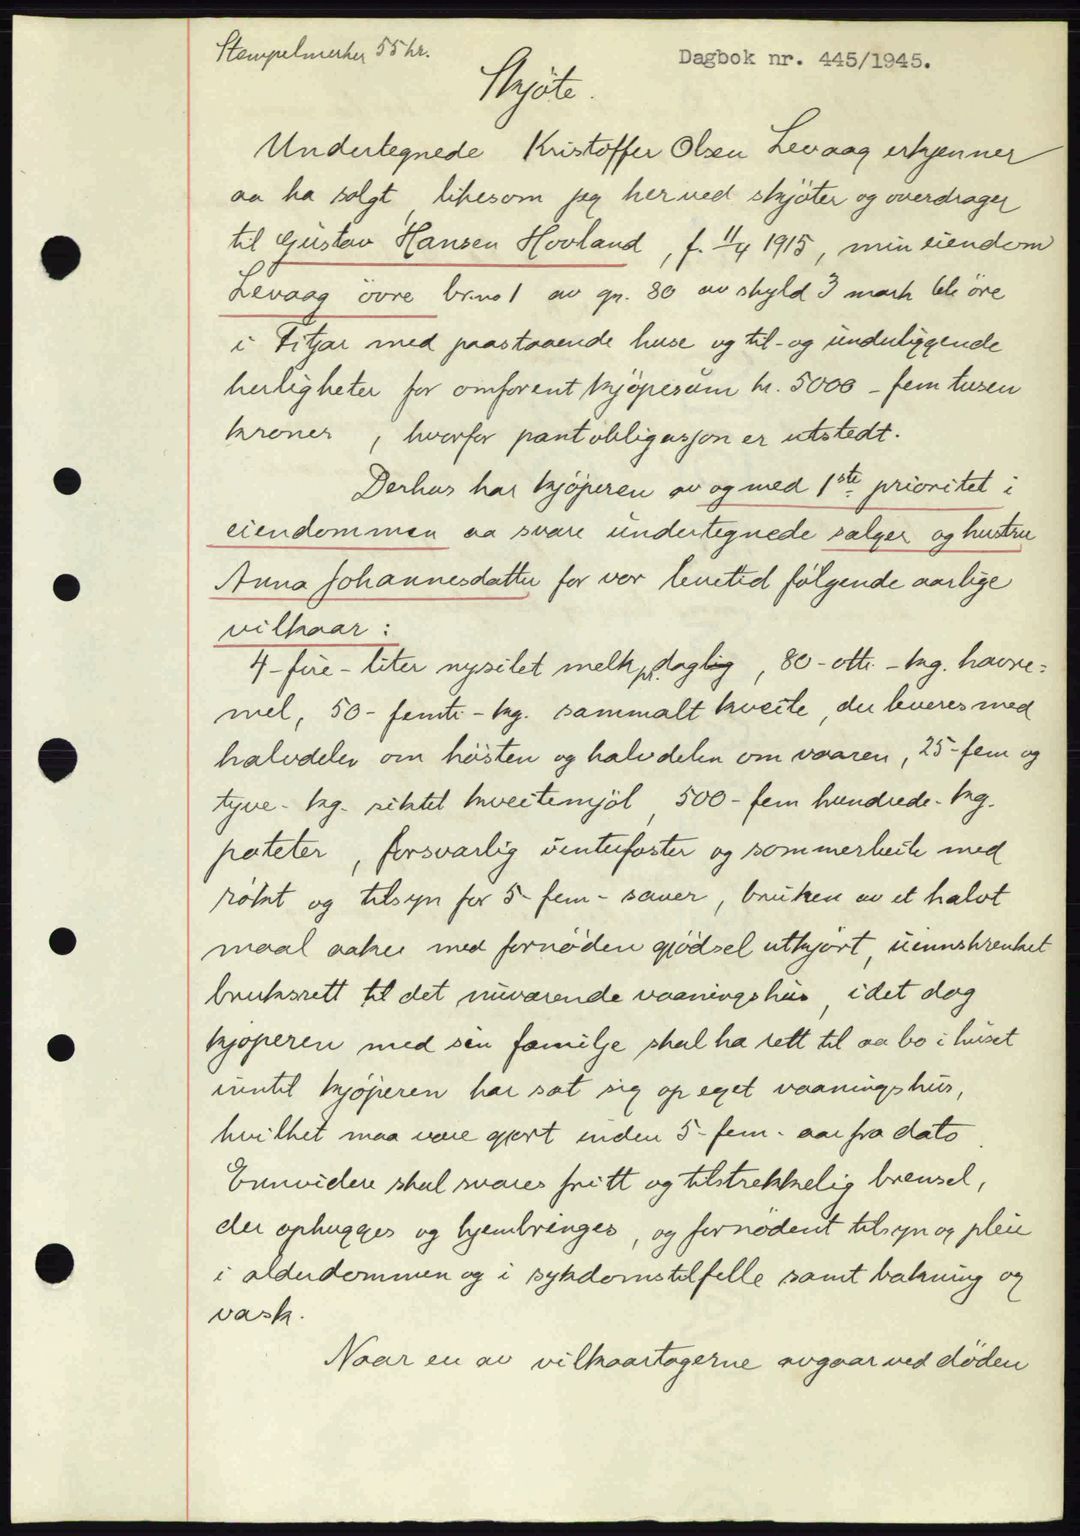 Stempelmerker 55 kr.
Dagbok nr. 445/1945.
Skjöte.
Undertegnede Kristoffer Olsen Levaag erkjenner
aa ha solgt, likesom jeg herved skjöter og overdrager
til Gustav Hansen Hovland, f. 11/4 1915, min eiendom
Levaag övre br.no 1 av gr. 80 av skyld 3 mark öre
i Fitjar med paastaaende huse og til- og underliggende
herligheter for omforent kjöpesum kr. 5000 - fem tusen
kroner, hvorfor pantobligasjon er utstedt.
Derhos har kjöperen av og med 1ste prioritet i
eiendommen aa svare undertegnede selger og hustru
Anna Johannesdatter for vor levetid fölgende aarlige
vilkaar:
4 - fire - liter nysilet melk pr. daglig, 80 - otti - kg. havre=
mel, 50 - femti - kg. sammalt kveite, der leveres med
halvdelen om hösten og halvdelen om vaaren, 25 - fem og
tyve - kg. siktet kveitemjöl, 500 - fem hundrede - kg.
poteter, forsvarlig vinterfoster og sommerbeite med
rökt og tilsyn for 5 - fem - sauer, bruken av et halvt
maal aaker med fornöden gjödsel utkjört, uinnskrenket
bruksrett til det nuværende vaaningshus, idet dog
kjöperen med sin familje skal ha rett til aa bo i huset
inntil kjöperen har sat sig op eget vaaningshus,
hvilket maa være gjort inden 5 - fem - aar fra dato.
Ennvidere skal svares fritt og tilstrekkelig brensel,
der ophugges og hjembringes, og fornödent tilsyn og pleie
i alderdommen og i sykdomstilfelle samt bakning og
vask.
Naar en av vilkaartagerne avgaar ved döden